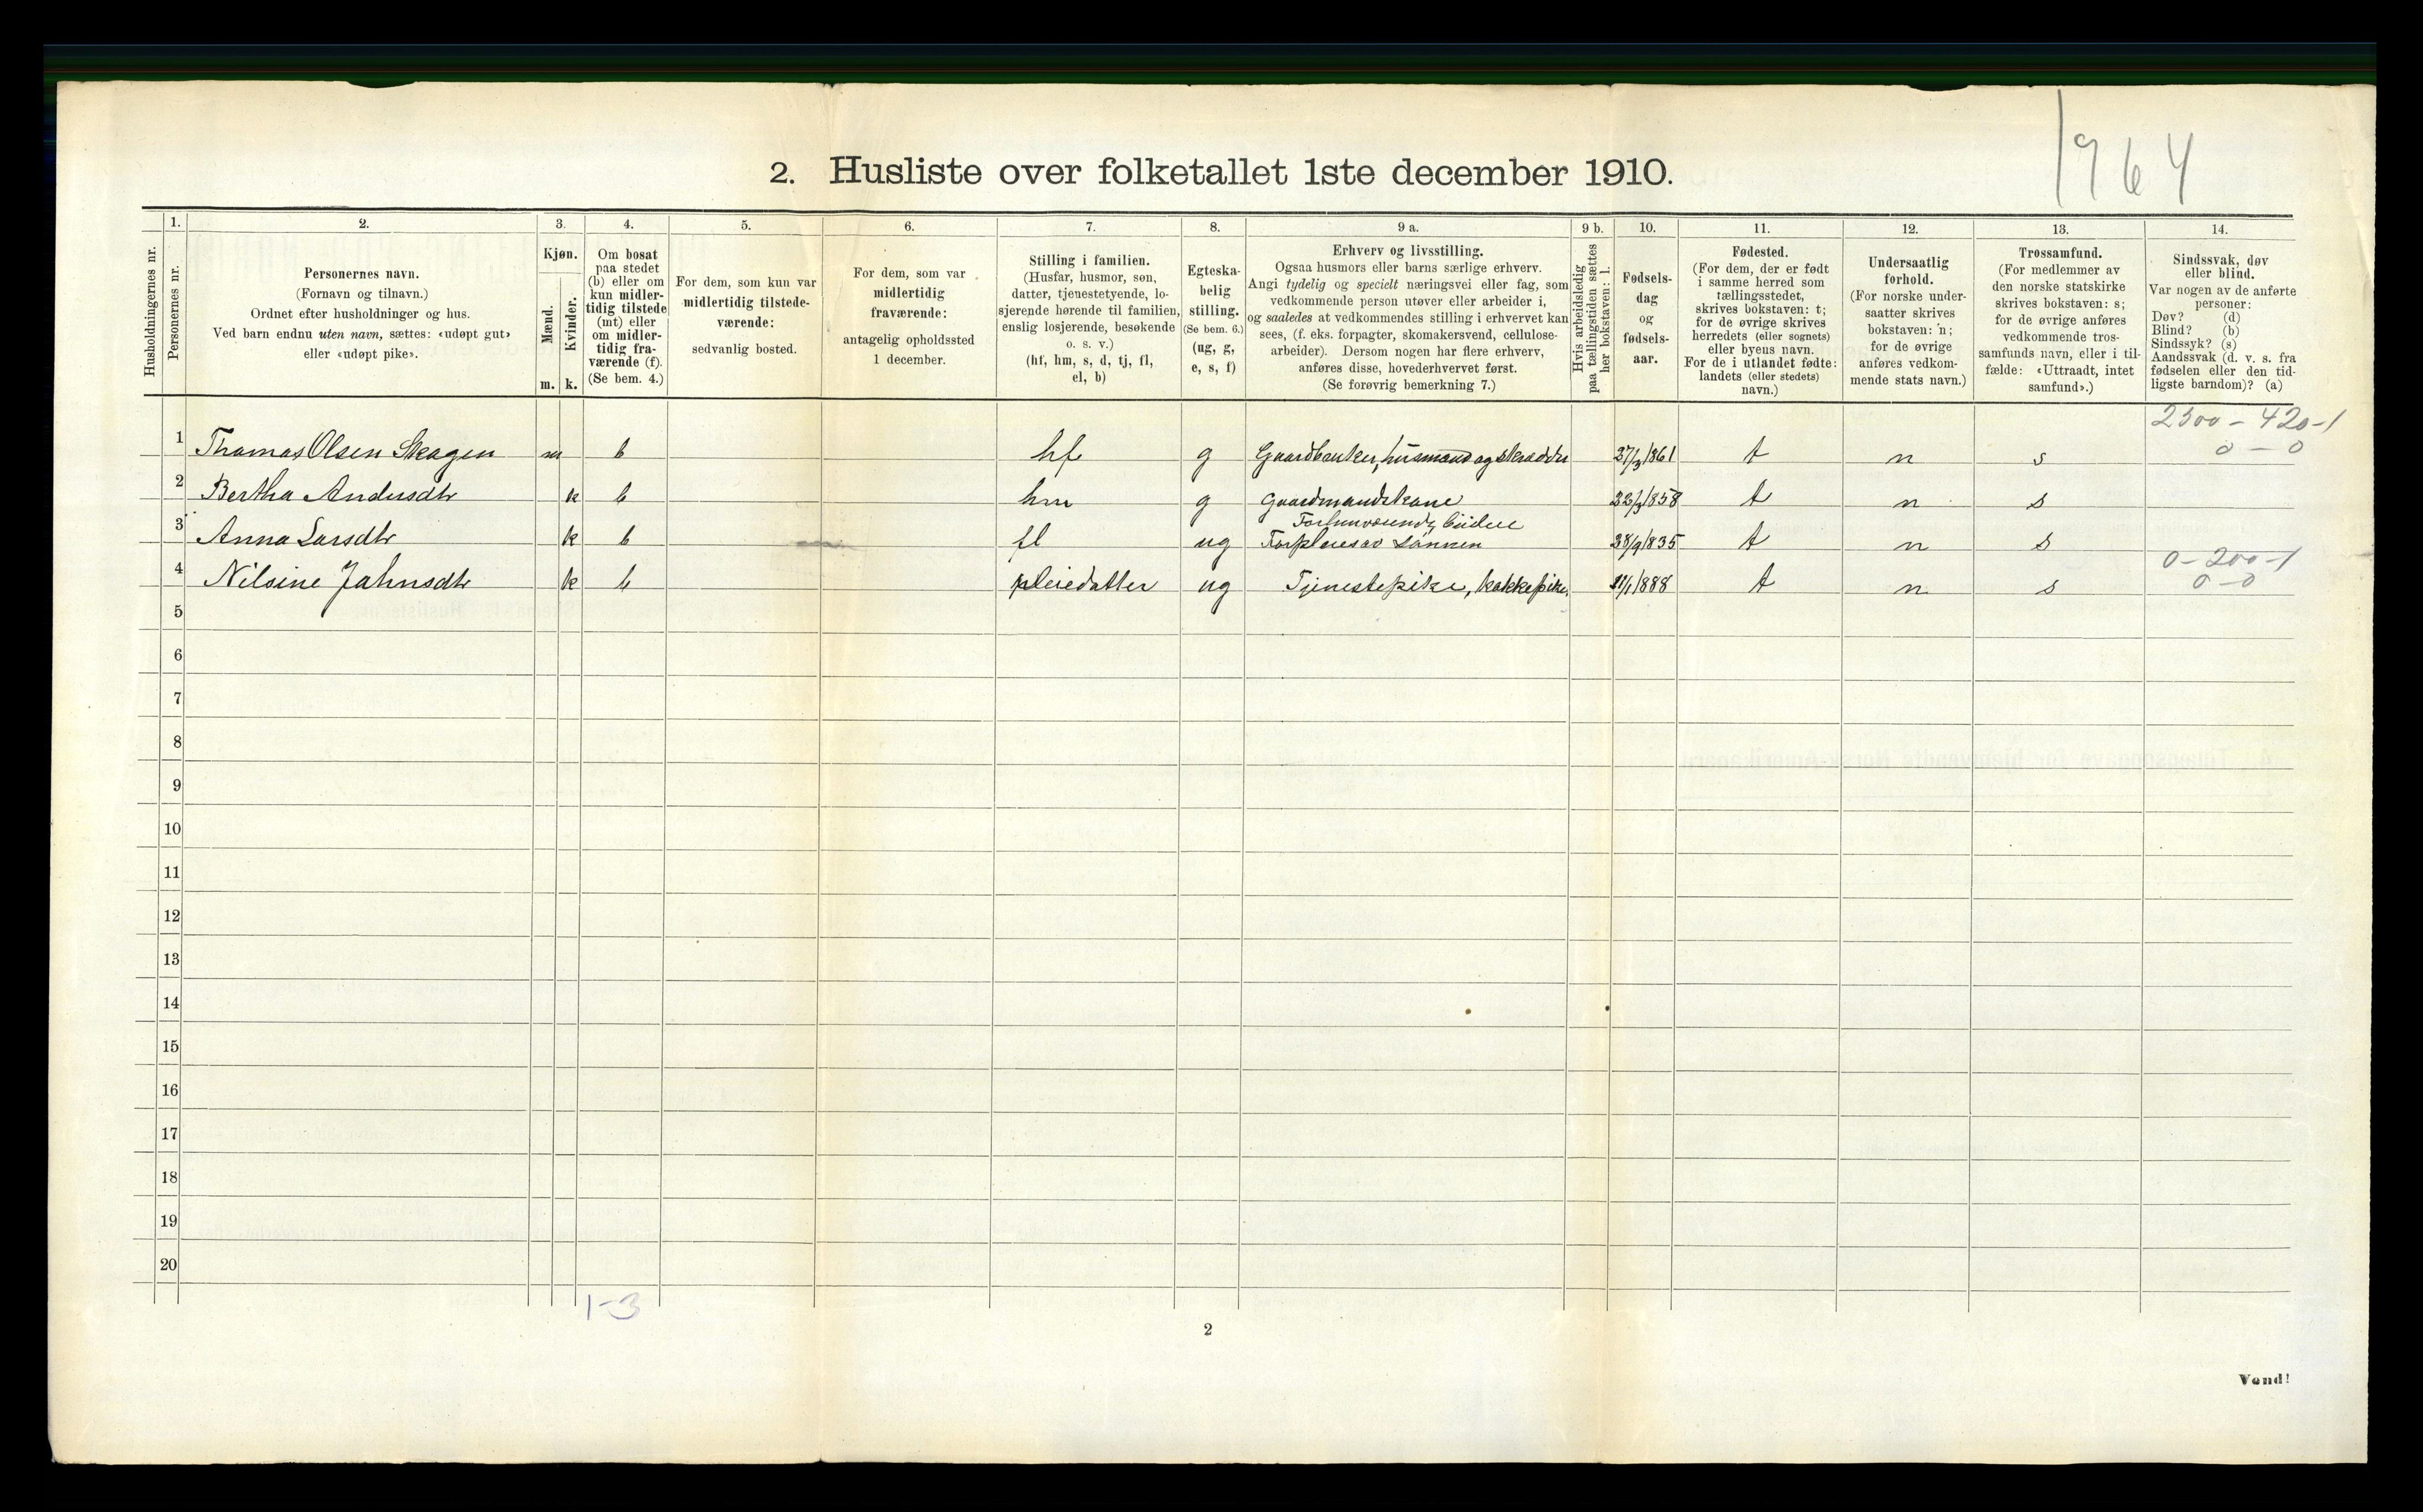 1964
2. Husliste over folketallet 1ste december 1910.
Husholdningernes nr.
1.
Personernes nr.
2.
Personernes navn.
(Fornavn og tilnavn.)
Ordnet efter husholdninger og hus.
Ved barn endnu uten navn, sættes: «udøpt gut»
eller «udøpt pike».
3.
Kjøn.
Mænd.
Kvinder.
m. k.
4.
Om bosat
paa stedet
(b) eller om
kun midler-
tidig tilstede
(mt) eller
om midler-
tidig fra-
værende (f).
(Se bem. 4.)
5.
For dem, som kun var
midlertidig tilstede-
værende:
sedvanlig bosted.
6.
For dem, som var
midlertidig
fraværende:
antagelig opholdssted
1 december.
7.
Stilling i familien.
(Husfar, husmor, søn,
datter, tjenestetyende, lo-
sjerende hørende til familien,
enslig losjerende, besøkende
o. s. v.)
(hf, hm, s, d, tj, fl,
el, b)
8.
Egteska-
belig
stilling.
(Se bem. 6.)
(ug, g,
e, s, f)
9 a.
Erhverv og livsstilling.
Ogsaa husmors eller barns særlige erhverv.
Angi tydelig og specielt næringsvei eller fag, som
vedkommende person utøver eller arbeider i,
og saaledes at vedkommendes stilling i erhvervet kan
sees, (f. eks. forpagter, skomakersvend, cellulose-
arbeider). Dersom nogen har flere erhverv,
anføres disse, hovederhvervet først.
(Se forøvrig bemerkning 7.)
9 b.
Hvis arbeidsledig
paa tællingstiden sættes
her bokstaven: l.
10.
Fødsels-
dag
og
fødsels-
aar.
11.
Fødested.
(For dem, der er født
i samme herred som
tællingsstedet,
skrives bokstaven: t;
for de øvrige skrives
herredets (eller sognets)
eller byens navn.
For de i utlandet fødte:
landets (eller stedets)
navn.)
12.
Undersaatlig
forhold.
(For norske under-
saatter skrives
bokstaven: n;
for de øvrige
anføres vedkom-
mende stats navn.)
13.
Trossamfund.
(For medlemmer av
den norske statskirke
skrives bokstaven: s;
for de øvrige anføres
vedkommende tros-
samfunds navn, eller i til-
fælde: «Uttraadt, intet
samfund».)
14.
Sindssvak, døv
eller blind.
Var nogen av de anførte
personer:
Døv? (d)
Blind? (b)
Sindssyk? (s)
Aandssvak (d. v. s. fra
fødselen eller den tid-
ligste barndom)? (a)
2300 - 420-1
0 - 0
1 Thomas Olsen Skagen m b hf g Gaardbruker, husmand og skrædder 27/3 1861 t n s
2 Bertha Andersdtr k b hm g Gaardmandskone 1858 t n s
3 Anna Larsdtr k b fl ug 1835 t n s
0-200-1
0-0
4 Nilsine Jahnsdtr k b pleiedatter ug Tjenestepike, kokkepike. 11/1 1888 t n s
5
6
7
8
9
10
11
12
13
14
15
16
17
18
19
20
1-3
2
Vend!